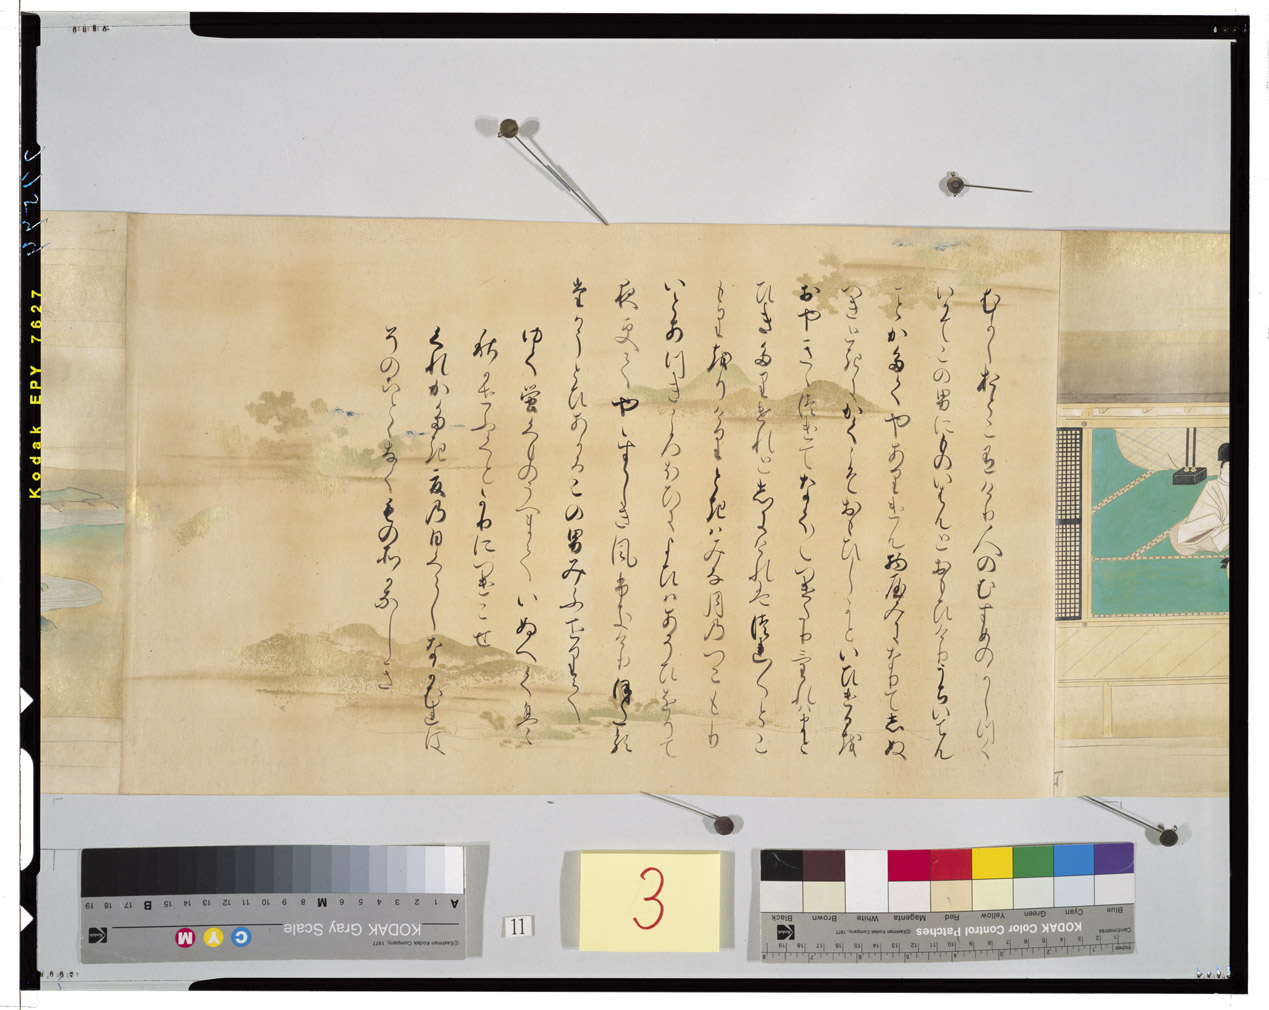 むかしおとこありけり人のむすめのかしつく
いかてこの男にものいはんとおもひけりうちいてん
ことかたくやありけん物病みになりてしぬ
へき時にかくこそおもひしかといひけるを
おやきゝつけてなく／＼つけたりけれはまと
ひきたりけれとしにけれはつれ／＼とこ
もりをりけりときはみな月のつこもり
いとあつきころほひによひはあそひをりて
夜更てやゝすゝしき風ふきけりほたる
たかうとひあかるこの男みふせりて
ゆく蛍くものうへまていぬへくは
秋風ふくとかりにつけこせ
くれかたき夏の日くらしなかむれは
そのことゝなくものそかなしき
Kodak EPY 7627
KODAK Gray Scale
C Y M
A 1 2 3 4 5 6 M 8 9 10 11 12 13 14 15 B 17 18 19
11
3
KODAK Color Control Patches
Blue Cyan Green Yellow Red Magenta White Brown Black